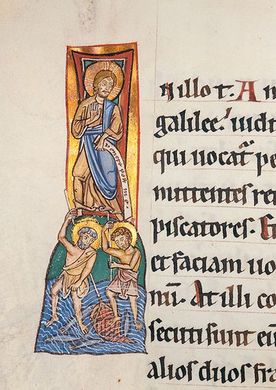 n illo t. A m
galilee. uidi
qui uocat᷑ pe
mittentes re
piscatores. E
et faciam uo
nū. At illi co
secuti sunt eu
alios duos fra